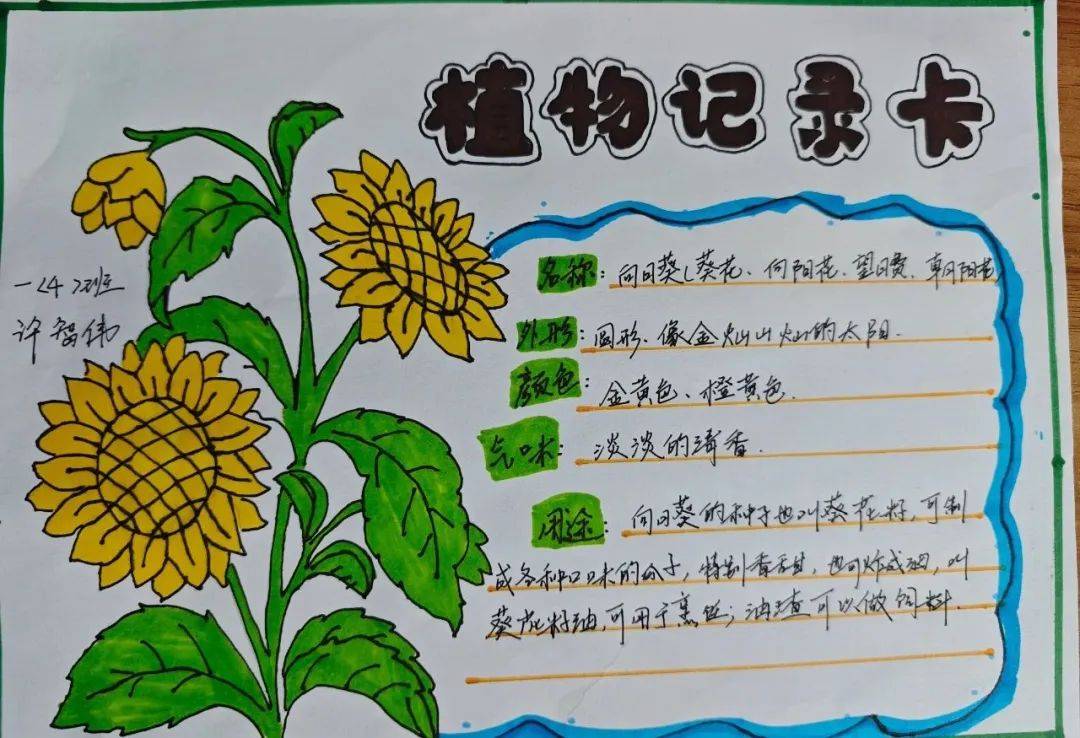 植物记录卡
一〈4〉班
许智伟
名称:向日葵(葵花、向阳花、望日葵、朝阳花
外形:圆形、像金灿灿的太阳.
颜色:金黄色、橙黄色.
气味:淡淡的清香.
用途:向日葵的种子也叫葵花籽,可制
成各种口味的瓜子,特别香甜,也可炸成油,叫
葵花籽油,可用于烹饪;油渣可以做饲料.